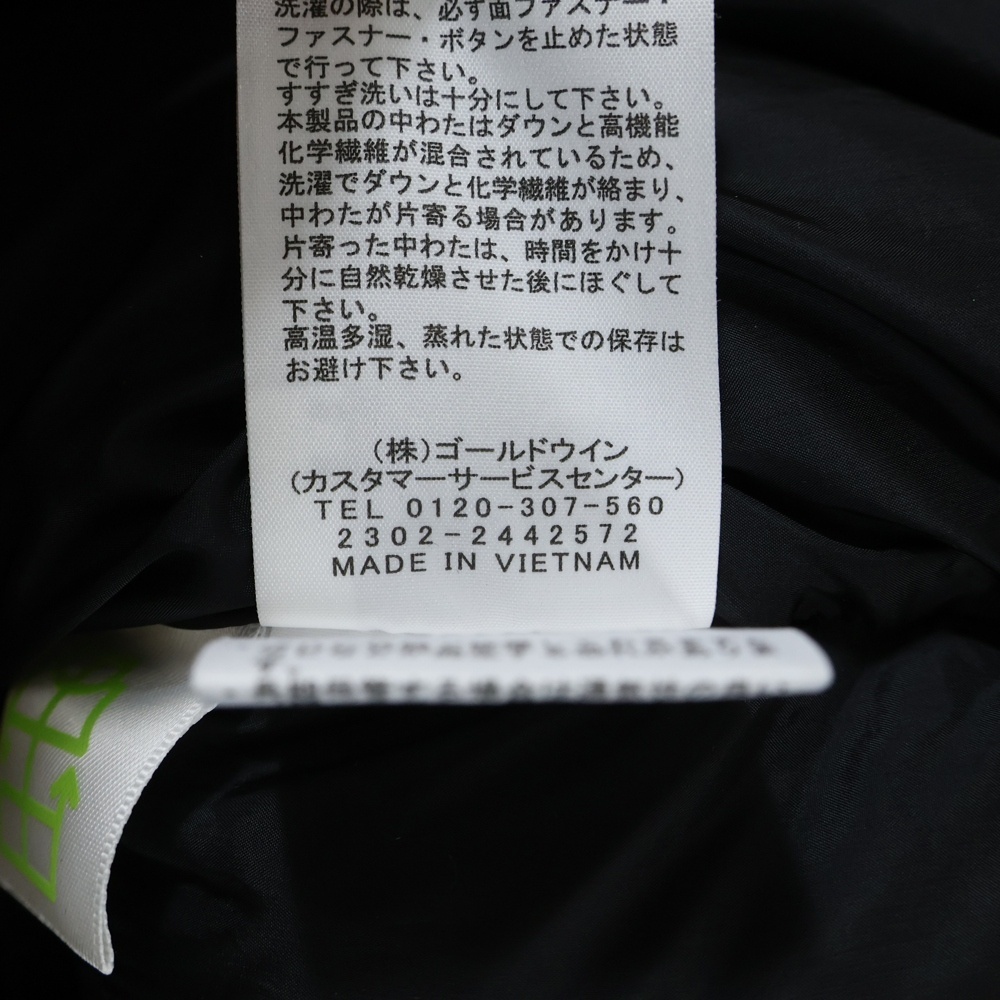 洗濯の際は、必ず面ファスナー・
ファスナー・ボタンを止めた状態
で行って下さい。
すすぎ洗いは十分にして下さい。
本製品の中わたはダウンと高機能
化学繊維が混合されているため、
洗濯でダウンと化学繊維が絡まり、
中わたが片寄る場合があります。
片寄った中わたは、時間をかけ十
分に自然乾燥させた後にほぐして
下さい。
高温多湿、蒸れた状態での保存は
お避け下さい。
(株)ゴールドウイン
(カスタマーサービスセンター)
TEL 0120-307-560
2302-2442572
MADE IN VIETNAM